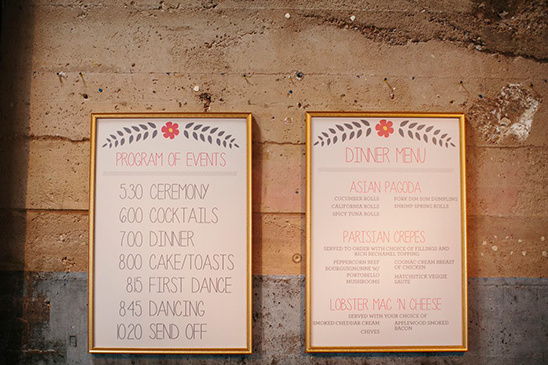 PROGRAM OF EVENTS
530 CEREMONY
600 COCKTAILS
700 DINNER
800 CAKE/TOASTS
815 FIRST DANCE
845 DANCING
1020 SEND OFF
DINNER MENU
ASIAN PAGODA
CUCUMBER ROLLS
CALIFORNIA ROLLS
SPICY TUNA ROLLS
PORK DIM SUM DUMPLING
SHRIMP SPRING ROLLS
PARISIAN CREPES
SERVED TO ORDER WITH CHOICE OF FILLINGS AND
RICH BECHAMEL TOPPING
PEPPERCORN BEEF
BOURGUIGNONNE W/
PORTOBELLO
MUSHROOMS
COGNAC CREAM BREAST
OF CHICKEN
MATCHSTICK VEGGIE
SAUTE
LOBSTER MAC 'N CHEESE
SERVED WITH YOUR CHOICE OF
SMOKED CHEDDAR CREAM
CHIVES
APPLEWOOD SMOKED
BACON